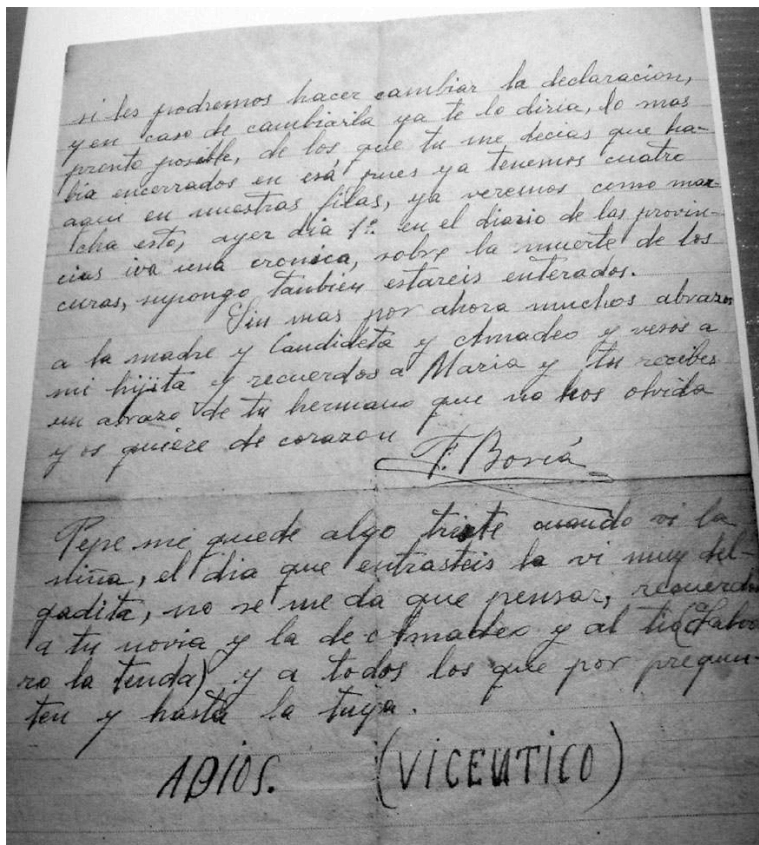 si les podremos hacer cambiar la declaracion,
y en caso de cambiarla ya te lo diria, lo mas
pronto posible, de los que tu me decias que ha-
bia encerrados en esa, pues ya tenemos cuatro
aqui en nuestras filas, ya veremos como mar-
cha esto, ayer dia 1º en el diario de las provin-
cias iva una cronica, sobre la muerte de los
curas, supongo tanbien estareis enterados.
Sin mas por ahora muchos abrazos
a la madre y Candideta y Amadeo y vesos a
mi hijita y recuerdos a Maria y tu recibes
un abrazo de tu hermano que no hos olvida
y os quiere de corazon
F. Boriá
Pepe me quede algo triste cuando vi la
niña, el dia que entrasteis la vi muy del-
gadita, no se me da que pensar, recuerdos
a tu novia y la de Amadeo y al tio
ro la tenda) y a todos los que por pregun-
ten y hasta la tuya.
ADIOS. (VICENTICO)